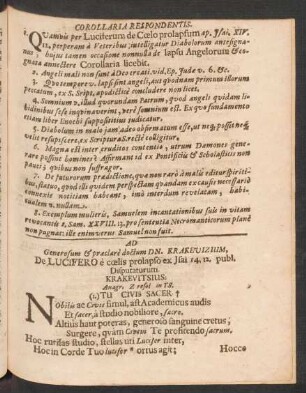 COROLLARIA RESPONDENTIS.
1. QUamvis per Luciferum de Cœlo prolapsum ap. Jsai. XIV.
12, perperam à Veteribus intelligatur Diabolorum antesigna-
nus, hujus tamen occasione nonnulla de lapsu Angelorum & co-
gnata annectere Corollaria licebit.
2. Angeli mali non sunt à Deo creati. vid. Ep. Judæ v. 6. &c.
3. Quo tempore v. lapsi sint angeli, aut quodnam primum illorum
peccatum, ex S. Script. apodicticè concludere non licet.
4. Somnium v. illud quorundam Patrum, quod angeli quidam li-
bidinibus se se inquinaverint, verè somnium est. Ex quo fundamento
etiam liber Enochi suppositius judicatur.
5. Diabolum in malo jam adeo obfirmatum esse, ut neq; possit neq;
velit resipiscere, ex Scriptura S. rectè colligitur.
6. Magna est inter eruditos contentio, utrum Dæmones gene-
rare possint homines? Affirmant id ex Pontificiis & Scholasticis non
pauci; quibus non suffragor.
7. De futurorum prædictione, quæ non rarò à malis editur spiriti-
bus, statuo, quod illi quidem perspectam quandam ex causis necessariò
connexis notitiam habeant, imò interdum revelatam, habi-
tualem v. nullam.
8. Exemplum mulieris, Samuelem incantationibus suis in vitam
revocantis 1, Sam. XXVIII. 13. pro sententia Necromanticorum planè
non pugnat: ille enim verus Samuel non fuit.
AD
Generosum & præclarè doctum DN. KRAKEVIZIUM,
De LUCIFERO è cœlis prolapso ex Jsai 14, 12. publ.
Disputaturum.
KRAKEVITSIUS:
Anagr. Z resol in TS.
(:) TU CIVIS SACER †
NObilis ac Civis simul, ast Academicus audis
Et sacer, à studio nobiliore, sacro.
Altius haut poteras, generoso sanguine cretus;
Surgere, quàm Civem Te profitendo sacrum.
Hoc rutilas studio, stellas uti Lucifer inter,
Hoc in Corde Tuo lucifer * ortus agit;
Hocce